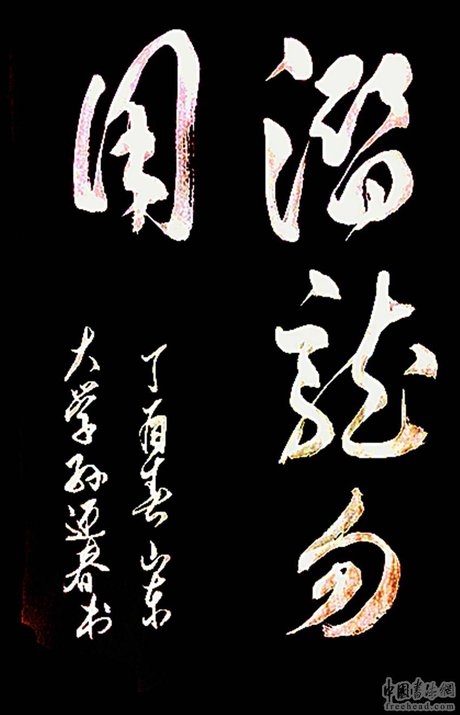 潛龍勿
用
丁酉春山东
大学孙迎春书
中国书法网
freehead.com